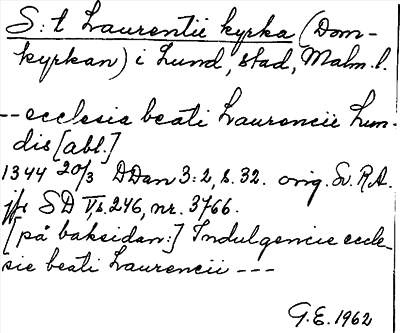 S:t Laurentii kyrka (Dom-
kyrkan) i Lund, stad, Malm. l.
-- ecclesia beati Laurencii Lun-
dis [abl.]
1344 20/3 DDan 3:2, s. 32. orig. Sv. R.A.
jfr SD V, s. 246, nr. 3766.
[på baksidan:] Indulgencie eccle-
sie beati Laurencii ---
G.E. 1962